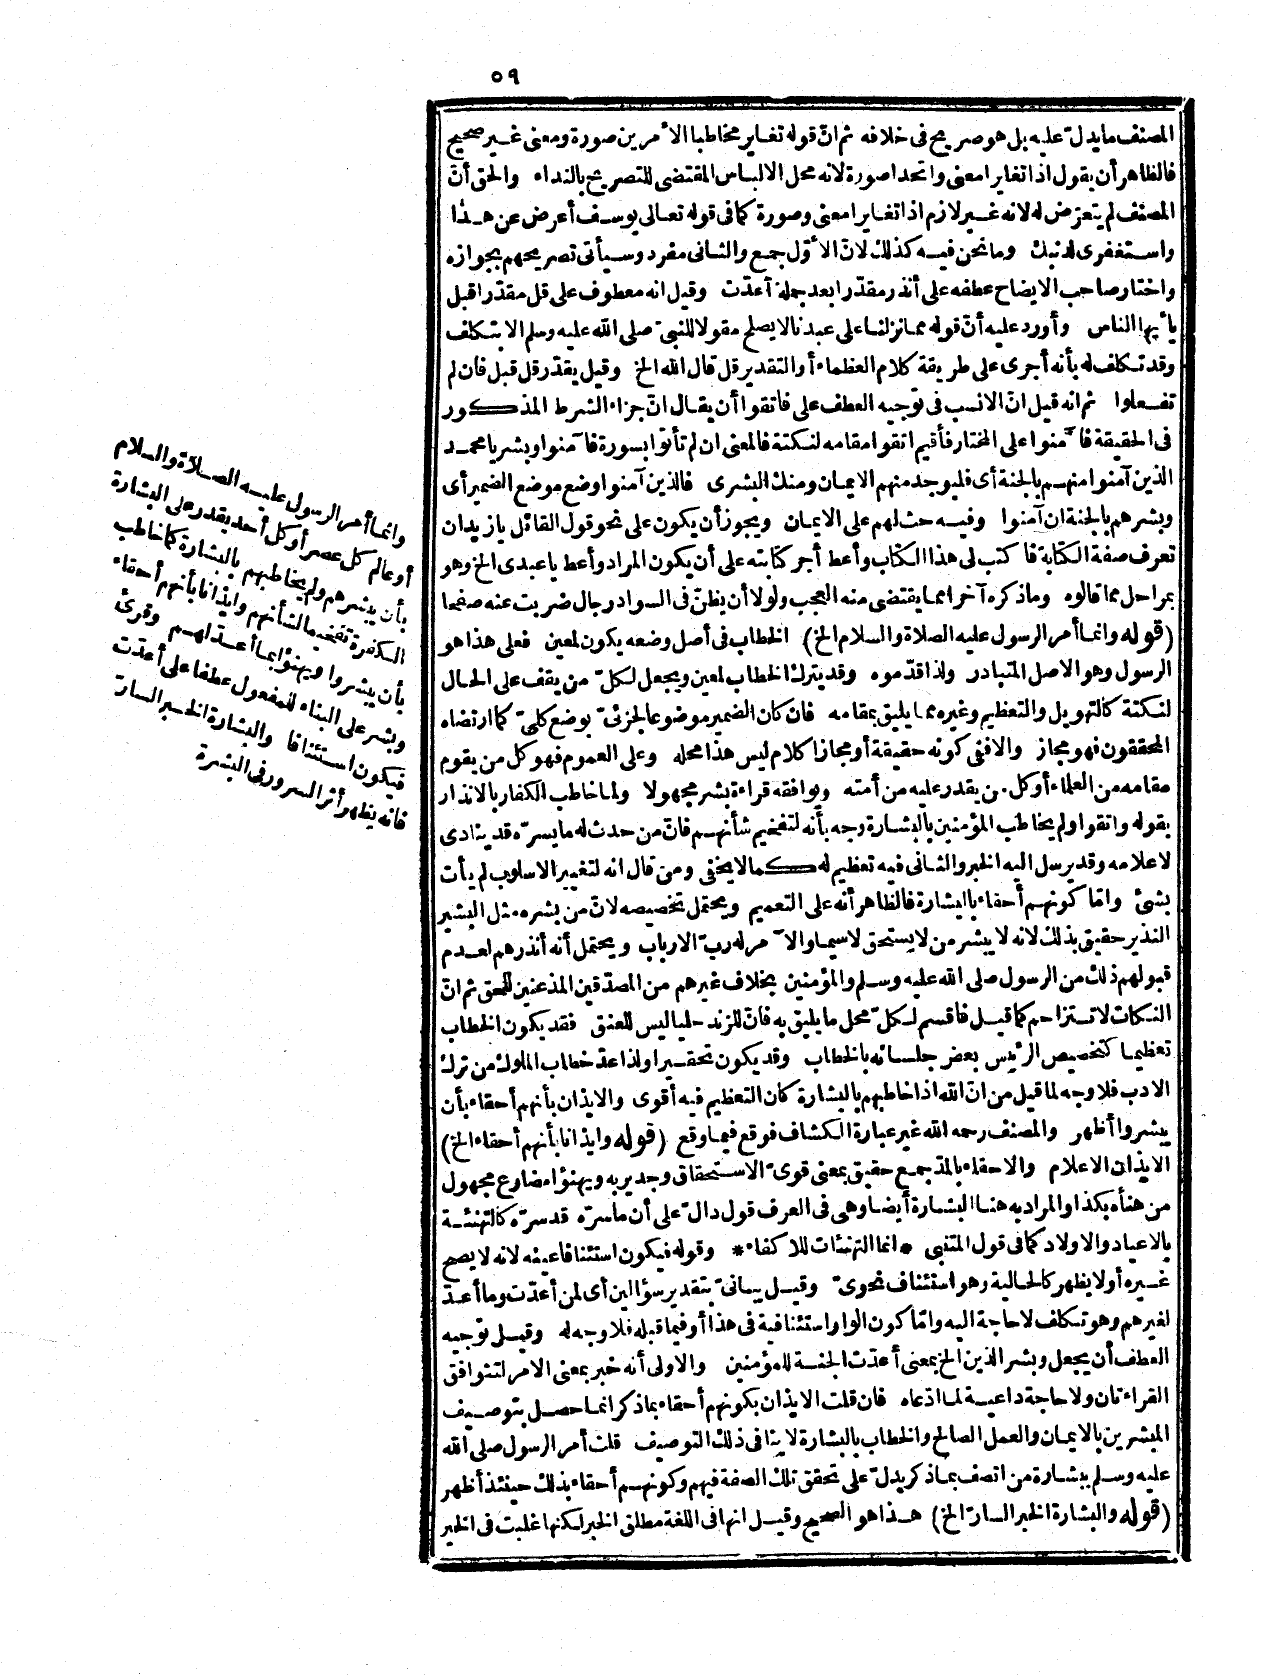 ٥٩
المصنف ما يدلّ عليه بل هو صريح في خلافه ثم انّ قوله تغاير مخاطبا الأمرين صورة ومعنى غير صحيح
فالظاهر أن يقول اذا تغايرا معنى واتحدا صورة لانه محل الالباس المقتضى للتصريح بالنداء والحق أنّ
المصنف لم يتعرّض له لانه غير لازم اذا تغايرا معنى وصورة كما في قوله تعالى يوسف أعرض عن هذا
واستغفرى لذنبك وما نحن فيه كذلك لانّ الاوّل جمع والثانى مفرد وسيأتى تصريحهم بجوازه
واختار صاحب الايضاح عطفه على أنذر مقدّرا بعد جملة أعدّت وقيل انه معطوف على قل مقدّرا قبل
يأيها الناس وأورد عليه أنّ قوله مما نزلنا على عبدنا لا يصلح مقولا للنبىّ صلى الله عليه وسلم الا بتكلف
وقد تكلف له بأنه أجرى على طريقة كلام العظماء أو التقدير قل قال الله الخ وقيل يقدّر قل قبل فان لم
تفعلوا ثم انه قيل انّ الانسب في توجيه العطف على فاتقوا أن يقال انّ جزاء الشرط المذكور
في الحقيقة فآمنوا على المختار فأقيم اتقوا مقامه لنكتة فالمعنى ان لم تأتوا بسورة فآمنوا وبشر يا محمد
الذين آمنوا منهم بالجنة أى فليوجد منهم الايمان ومنك البشرى فالذين آمنوا وضع موضع الضمير أى
وبشرهم بالجنة ان آمنوا وفيه حث لهم على الايمان ويجوز أن يكون على نحو قول القائل يا زيد ان
تعرف صفة الكتابة فاكتب لى هذا الكتاب وأعط أجر كتابته على أن يكون المراد وأعط يا عبدى الخ وهو
بمراحل مما قالوه وما ذكره آخرا مما يقتضى منه العجب ولولا أن يظنّ في السواد رجال ضربت عنه صفحا
(قوله وانما أمر الرسول عليه الصلاة والسلام الخ) الخطاب في أصل وضعه يكون لمعين فعلى هذا هو
الرسول وهو الاصل المتبادر ولذا قدّموه وقد يترك الخطاب لمعين ويجعل لكلّ من يقف على الحال
لنكتة كالتهويل والتعظيم وغيره مما يليق بمقامه فان كان الضمير موضوعا لجزئىّ بوضع كلىّ كما ارتضاه
المحققون فهو مجاز والا ففى كونه حقيقة أو مجازا كلام ليس هذا محله وعلى العموم فهو كل من يقوم
مقامه من العلماء أو كل من يقدر عليه من أمته ويوافقه قراءة بشر مجهولا ولما خاطب الكفار بالانذار
بقوله واتقوا ولم يخاطب المؤمنين بالبشارة وجه بأنه لتفخيم شأنهم فانّ من حدث له ما يسرّه قد ينادى
لاعلامه وقد يرسل اليه الخبر والثانى فيه تعظيم له كما لا يخفى ومن قال انه لتغيير الاسلوب لم يأت
بشئ وامّا كونهم أحقاء بالبشارة فالظاهر أنه على التعميم ويحتمل تخصيصه لانّ من بشره مثل البشير
النذير حقيق بذلك لانه لا يبشر من لا يستحق لاسيما والآمر له ربّ الارباب ويحتمل أنه أنذرهم لعدم
قبولهم ذلك من الرسول صلى الله عليه وسلم والمؤمنين بخلاف غيرهم من المصدّقين المذعنين للحق ثم انّ
النكات لا تتزاحم كما قيل فاقسم لكلّ محل ما يليق به فانّ للزند حليا ليس للعنق فقد يكون الخطاب
تعظيما كتخصيص الرئيس بعض جلسائه بالخطاب وقد يكون تحقيرا ولذا عدّ خطاب الملوك من ترك
الادب فلا وجه لما قيل من انّ الله اذا خاطبهم بالبشارة كان التعظيم فيه أقوى والايذان بأنهم أحقاء بأن
يبشروا أظهر والمصنف رحمه الله غير عبارة الكشاف فوقع فيما وقع (قوله وايذانا بأنهم أحقاء الخ)
الايذان الاعلام والاحقاء بالمدّ جمع حقيق بمعنى قوىّ الاستحقاق وجدير به ويهنؤا مضارع مجهول
من هنأه بكذا والمراد به هنا البشارة أيضا وهى في العرف قول دالّ على أن ما سرّه قد سرّه كالتهنئة
بالاعياد والاولاد كما في قول المتنبى * انما التهنئات للاكفاء * وقوله فيكون استئنافا عينه لانه لا يصح
غيره أو لا يظهر كالحالية وهو استئناف نحوىّ وقيل بيانىّ بتقدير سؤالين أى لمن أعدّت وما أعدّ
لغيرهم وهو تكلف لا حاجة اليه وامّا كون الواو استئنافية في هذا أو فيما قبله فلا وجه له وقيل توجيه
العطف أن يجعل وبشر الذين الخ بمعنى أعدّت الجنة للمؤمنين والاولى أنه خبر بمعنى الامر لتتوافق
القراءتان ولا حاجة داعية لما ادّعاه فان قلت الايذان بكونهم أحقاء بما ذكر انما حصل بتوصيف
المبشرين بالايمان والعمل الصالح والخطاب بالبشارة لا ينافى ذلك التوصيف قلت أمر الرسول صلى الله
عليه وسلم ببشارة من اتصف بما ذكر يدلّ على تحقق تلك الصفة فيهم وكونهم أحقاء بذلك حينئذ أظهر
(قوله والبشارة الخبر السارّ الخ) هذا هو الصحيح وقيل انها في اللغة مطلق الخبر لكنها غلبت في الخير
وانما أمر الرسول عليه الصلاة والسلام
أو عالم كل عصر أو كل أحد يقدر على البشارة
بأن يبشرهم ولم يخاطبهم بالبشارة كما خاطب
الكفرة تفخيما لشأنهم وايذانا بأنهم أحقاء
بأن يبشروا ويهنؤا بما أعدّ لهم وقرئ
وبشر على البناء للمفعول عطفا على أعدّت
فيكون استئنافا والبشارة الخبر السارّ
فانه يظهر أثر السرور في البشرة